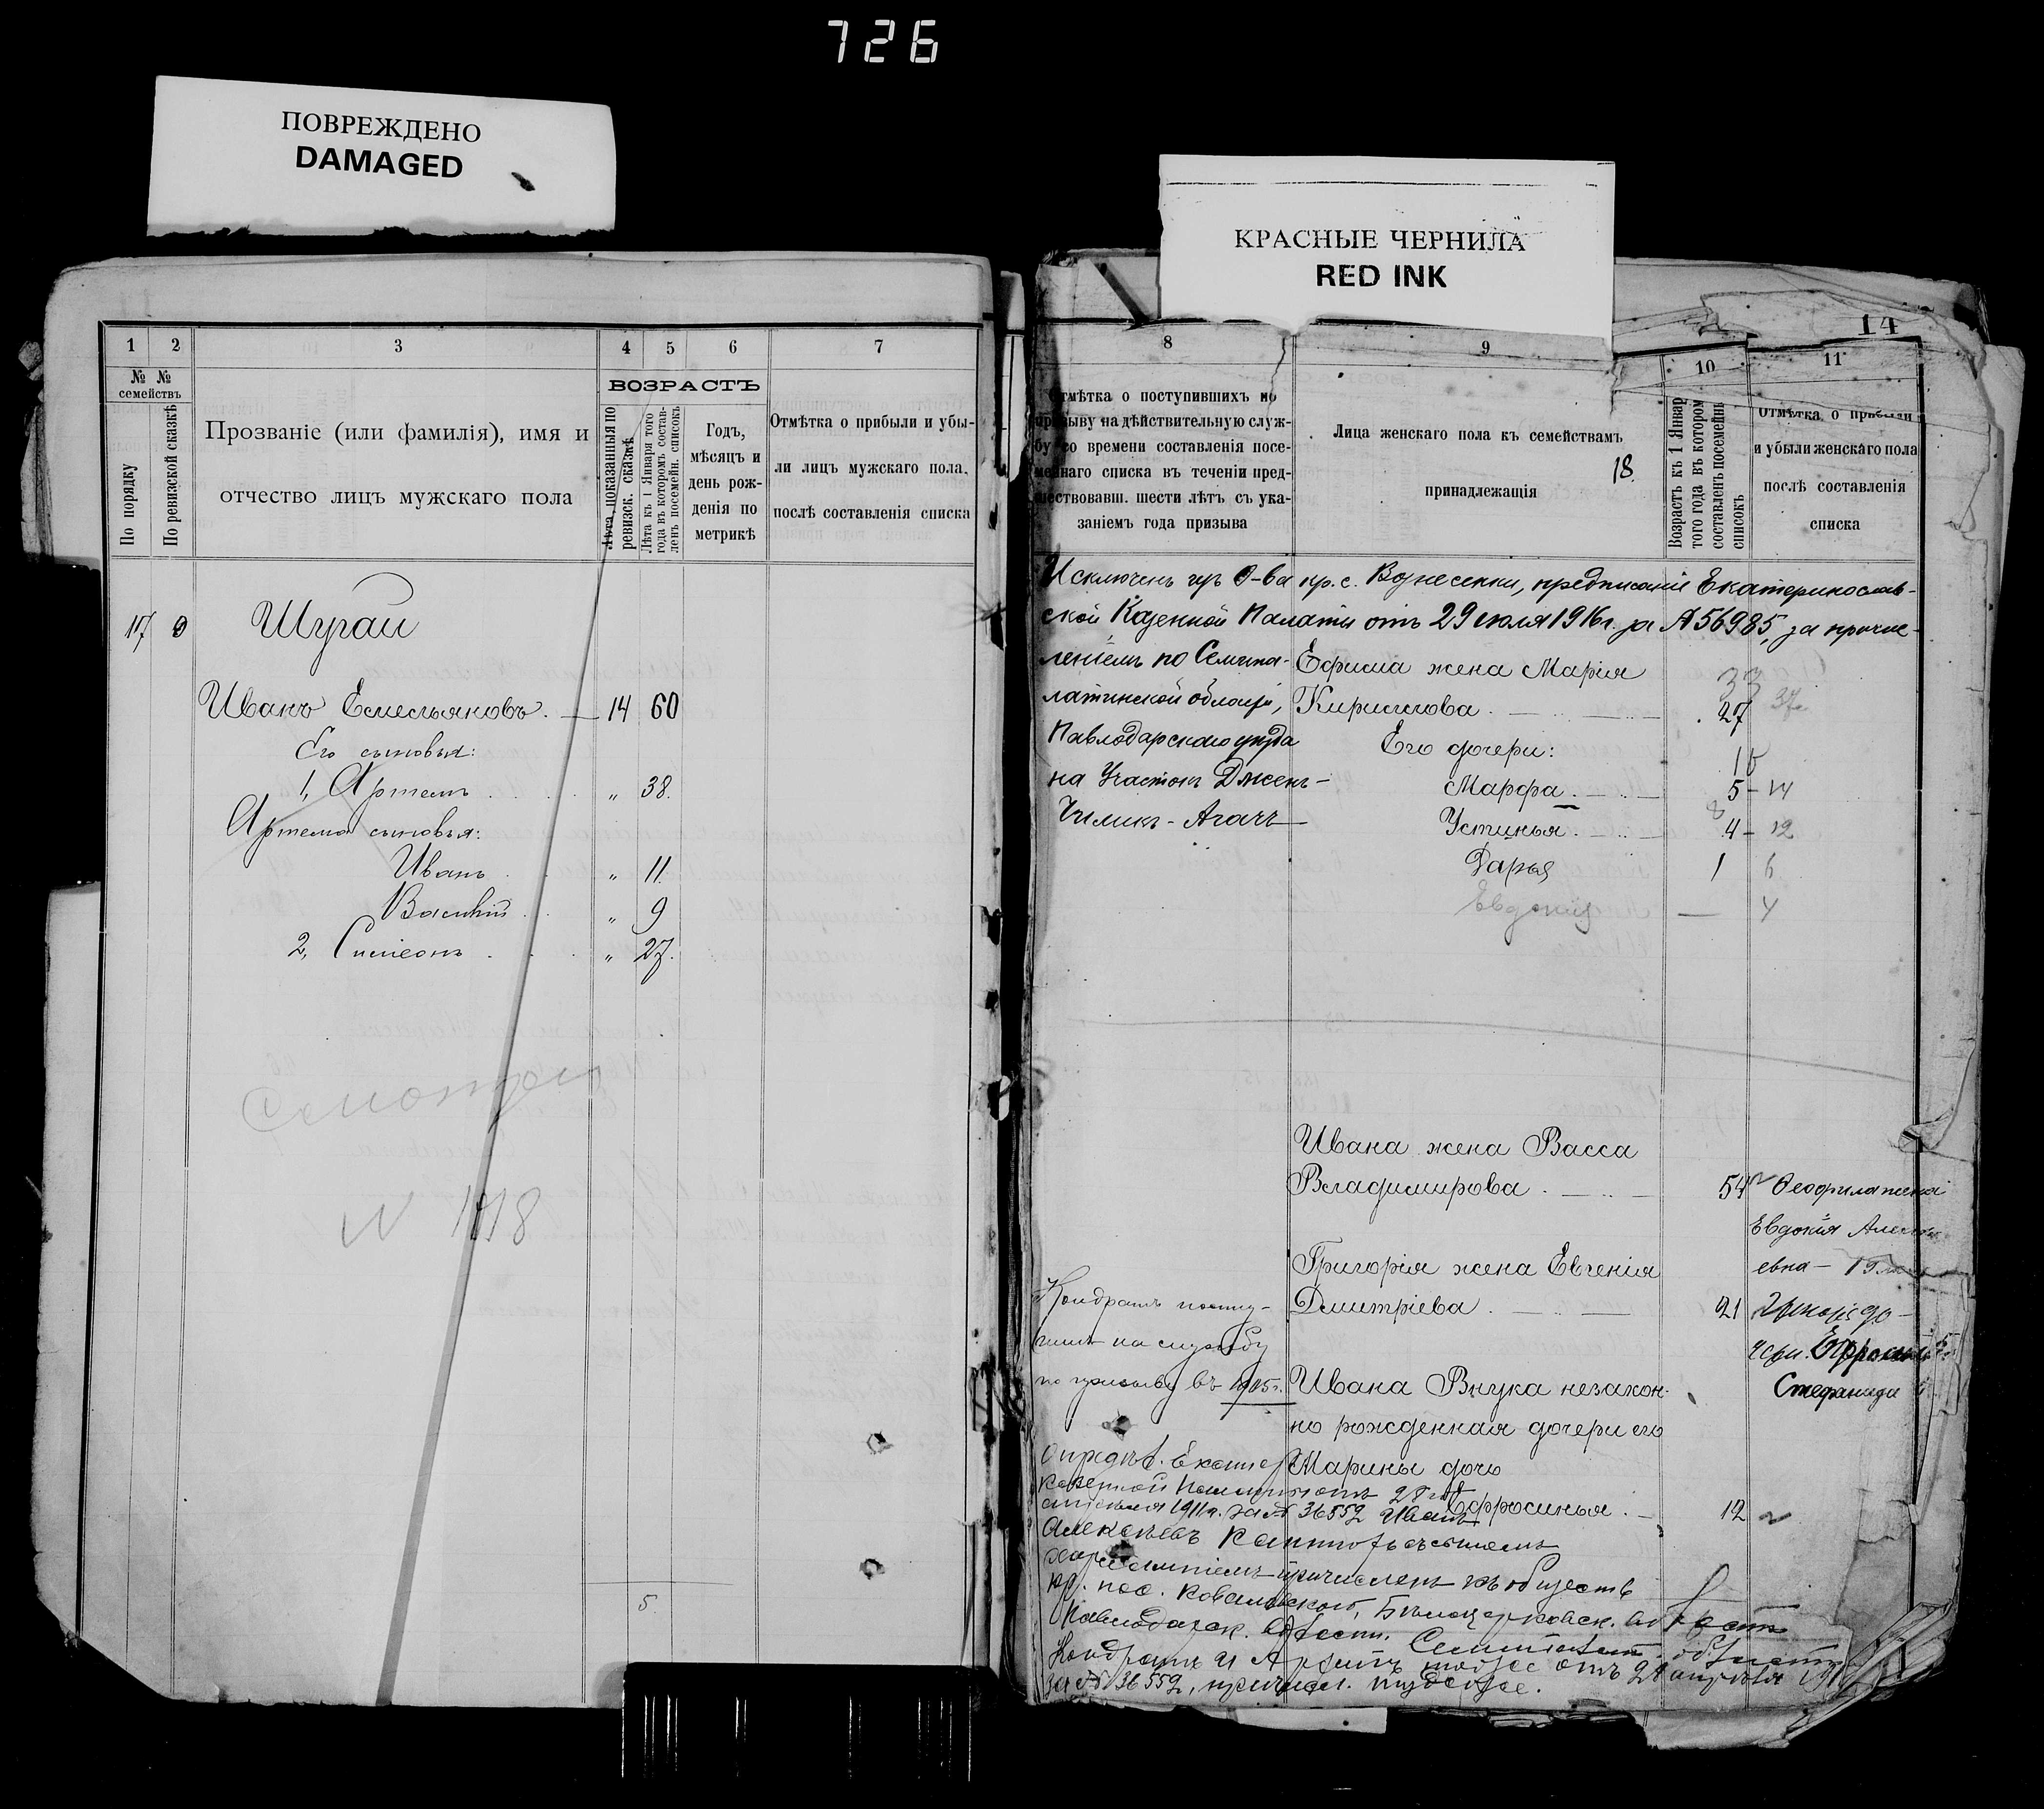 726
ПОВРЕЖДЕНО
DAMAGED
КРАСНЫЕ ЧЕРНИЛА
RED INK
1 2 3 4 5 6 7
№ № семействъ
По порядку
По ревизской сказкѣ
Прозваніе (или фамилія), имя и
отчество лицъ мужскаго пола
ВОЗРАСТЪ
Лѣта показанныя по
ревизск. сказкѣ
Лѣта къ 1 Января того
года въ которомъ состав-
ленъ посемейн. списокъ
Годъ,
мѣсяцъ и
день рож-
денія по
метрикѣ
Отмѣтка о прибыли и убы-
ли лицъ мужскаго пола,
послѣ составленія списка
17 9 Шугай
Иванъ Емельяновъ. 14 60
Его сыновья:
1, Артемъ „ 38.
Артема сыновья:
Иванъ „ 11.
Василій „ 9
2, Симеонъ „ 27.
N 1818
5
14
8 9 10 11
Отмѣтка о поступившихъ по
призыву на дѣйствительную служ-
бу со времени составленія посе-
мейнаго списка въ теченіи пред-
шествовавш. шести лѣтъ съ ука-
заніемъ года призыва
Лица женскаго пола къ семействамъ
18.
принадлежащія
Возрастъ къ 1 Январ
того года въ которомъ
составленъ посемейн
списокъ
Отмѣтка о прибыли
и убыли женскаго пола
послѣ составленія
списка
Исключенъ изъ О-ва кр. с. Вознесенки, предписаніе Екатеринослав-
ской Казенной Палаты отъ 29 іюля 1916 г. за № 56985, за причис-
леніемъ по Семипа-
латинской области,
Павлодарскаго уѣзда
на Участокъ Джень-
Чиликъ-Агачъ
Ефима жена Марія
33
Кириллова 27 37
Его дочери:
10
Марфа 5 - 14
8
Устинья 4 - 12
Дарья 1 6
Евдокія — 4
Ивана жена Васса
Владимирова 54 Феофила жена
Евдокія
евна —
Григорія жена Евгенія
Дмитріева 21
Стефанида
Кондратъ посту-
пилъ на службу
по призыву въ 1905 г.
Ивана Внука незакон-
но рожденная дочери его
Марины дочь
Ефросинья 12
Казенной Палаты отъ 28
апрѣля 1911 г. за № 36552 Иванъ
Алексѣевъ съ сыномъ
причисленъ къ обществ
кр. пос. Ковалевскаго, Бѣлоцерковск. волости
Павлодарск.
Кондратъ и тоже отъ 28 апрѣля
за № 36552, причисл. туда же.